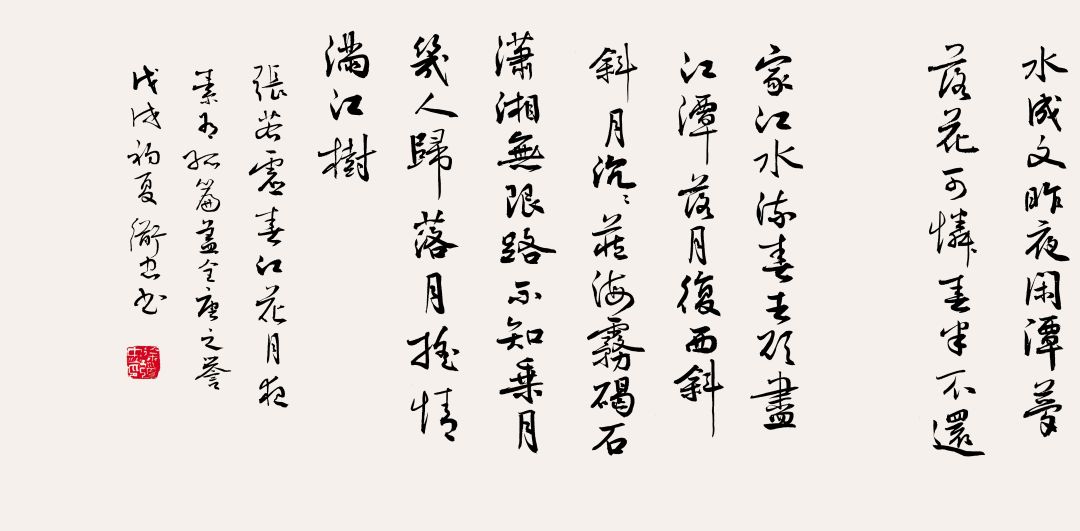 水成文昨夜闲潭夢
落花可憐春半不還
家江水流春去欲盡
江潭落月復西斜
斜月沉〻藏海霧碣石
瀟湘無限路不知乘月
幾人歸落月摇情
滿江樹
張若虛春江花月夜
素有孤篇盖全唐之誉
戊戌初夏衛忠书